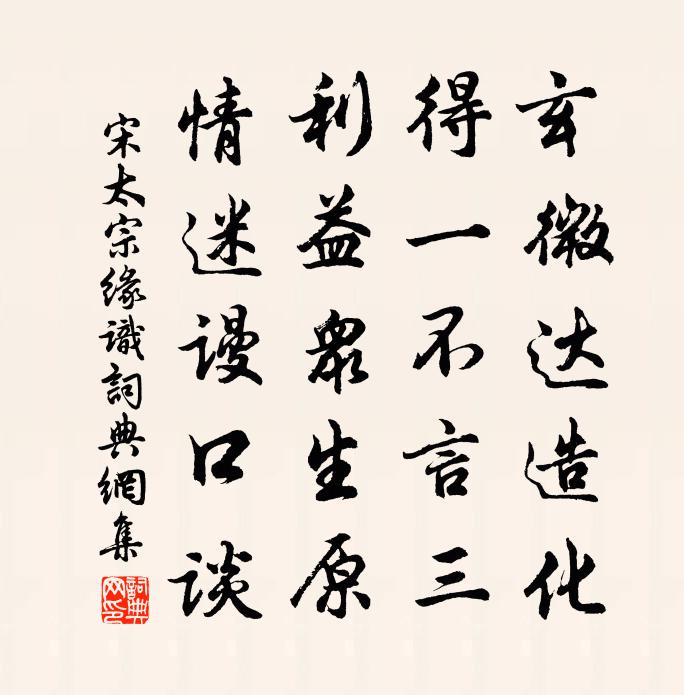 玄微达造化
得一不言三
利益衆生原
情迷谩口谈
宋太宗缘識詞典網集
詞典网印